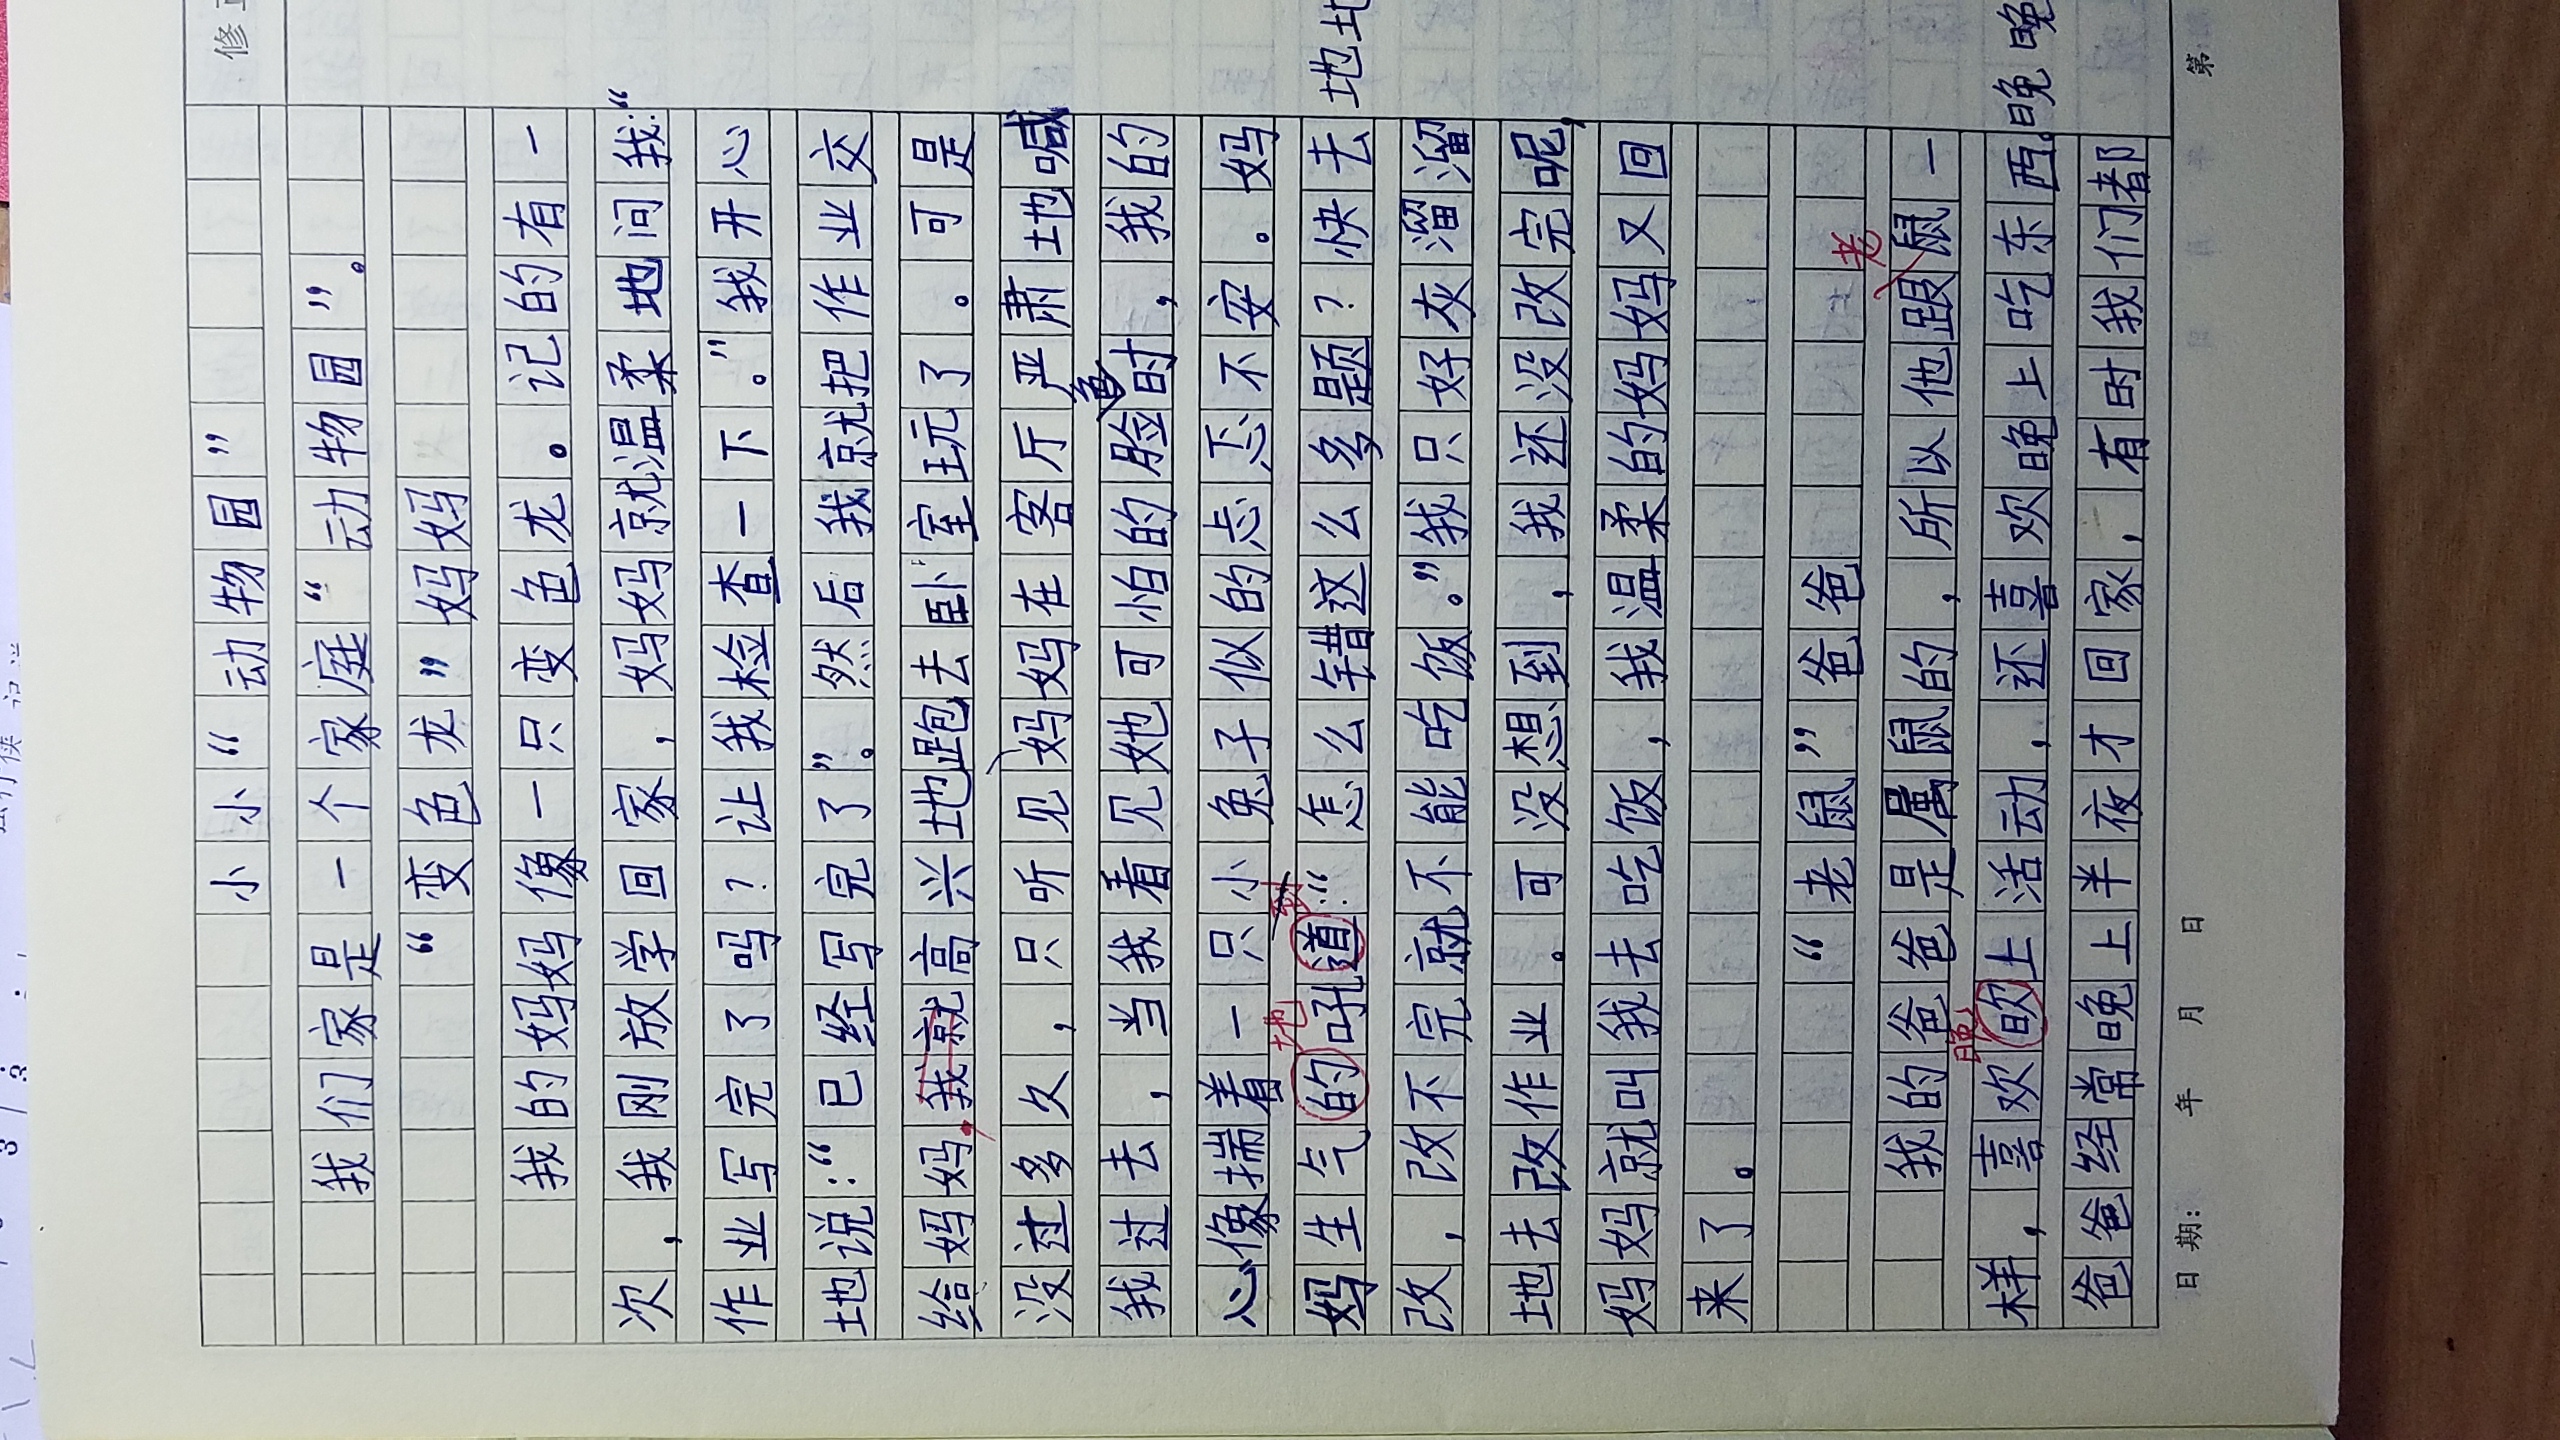 修
小小“动物园”
我们家是一个家庭“动物园”。
“变色龙”妈妈
我的妈妈像一只变色龙。记的有一
次，我刚放学回家，妈妈就温柔地问我：“
作业写完了吗？让我检查一下。”我开心
地说：“已经写完了”。然后我就把作业交
给妈妈，我就高兴地跑去卧室玩了。可是
没过多久，只听见妈妈在客厅严肃地喊
我过去，当我看见她可怕的脸时，我的
心像揣着一只小兔子似的忐忑不安。妈
地
妈生气的吼道：“怎么错这么多题？快去
改，改不完就不能吃饭。”我只好灰溜溜
地去改作业。可没想到，我还没改完呢，
妈妈就叫我去吃饭，我温柔的妈妈又回
来了。
“老鼠”爸爸
老
我的爸爸是属鼠的，所以他跟鼠一
晚
样，喜欢晚上活动，还喜欢晚上吃东西。晚晚
爸爸经常晚上半夜才回家，有时我们都
日期： 年 月 日 第